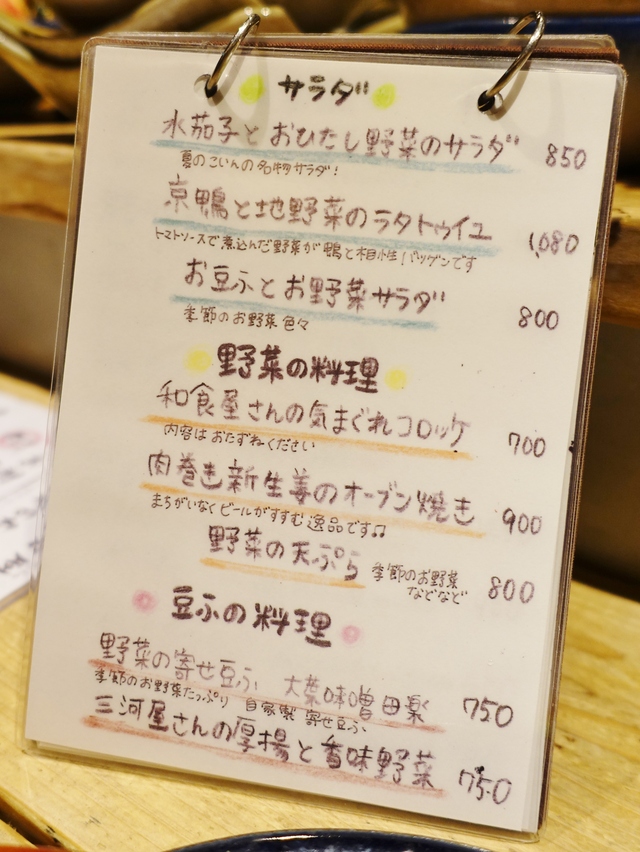 サラダ
水茄子とおひたし野菜のサラダ 850
夏のこいんの名物サラダ!
京鴨と地野菜のラタトゥイユ 1,680
トマトソースで煮込んだ野菜が鴨と相性バツグンです
お豆ふとお野菜サラダ 800
季節のお野菜色々
野菜の料理
和食屋さんの気まぐれコロッケ 700
内容はおたずねください
肉巻き新生姜のオーブン焼き 900
まちがいなくビールがすすむ逸品です♫
野菜の天ぷら 季節のお野菜 800
などなど
豆ふの料理
野菜の寄せ豆ふ 大葉味噌田楽 750
季節のお野菜たっぷり 自家製 寄せ豆ふ
三河屋さんの厚揚と香味野菜 750